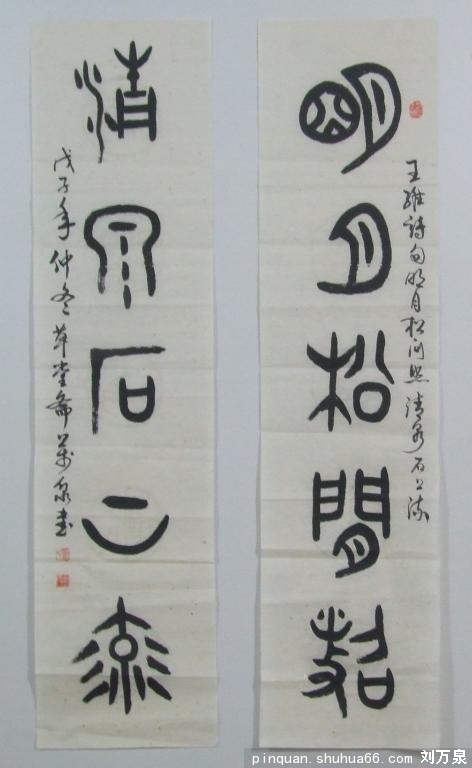 明月松間照
王維詩句明月松间照清泉石上流
清泉石上流
戊子年仲冬草堂斋萬泉书
pinquan.shuhua66.com 刘万泉